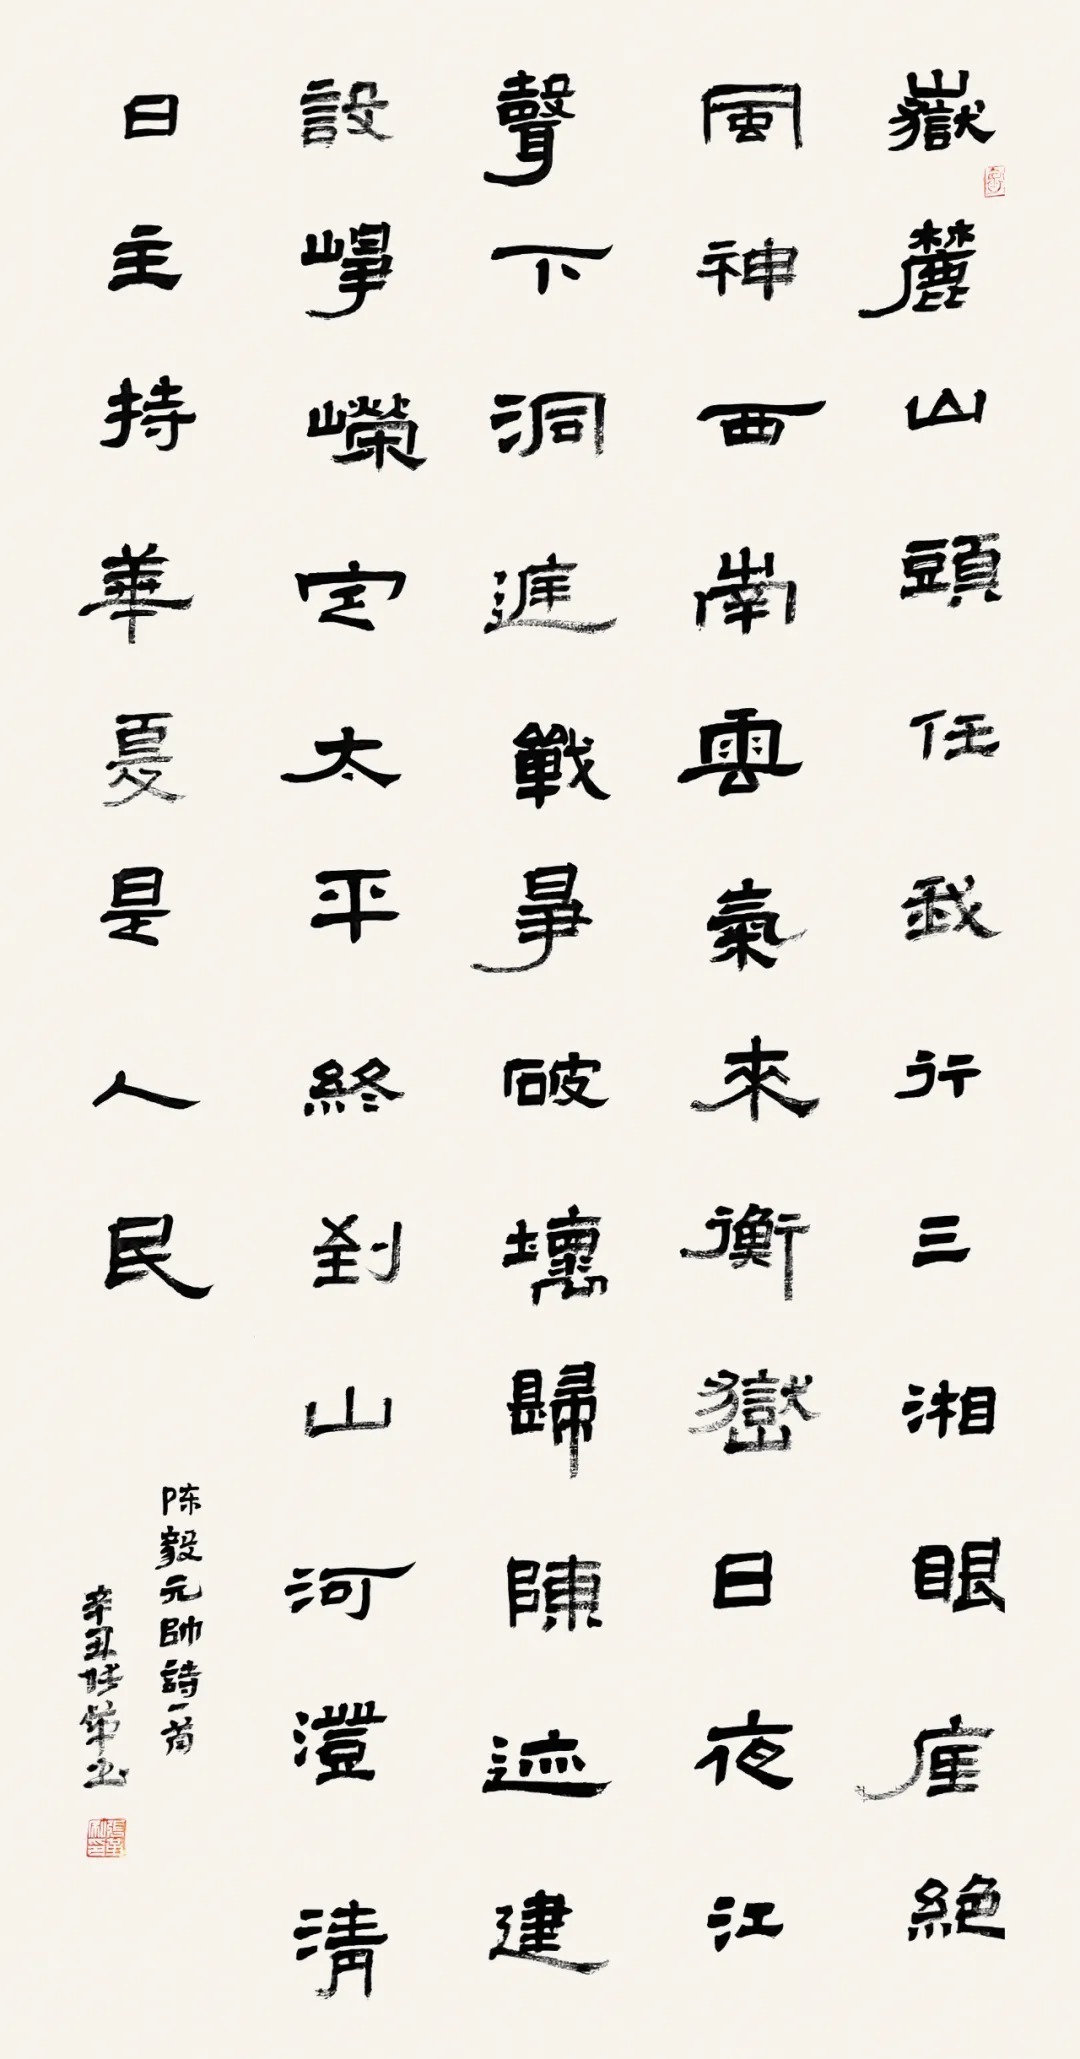 嶽麓山頭任我行三湘眼崖絶
風神西南雲氣來衡嶽日夜江
聲下洞庭戰爭破壞歸陳迹建
設崢嶸定太平終到山河澄清
日主持華夏是人民
陈毅元帥詩一首
辛丑张華书